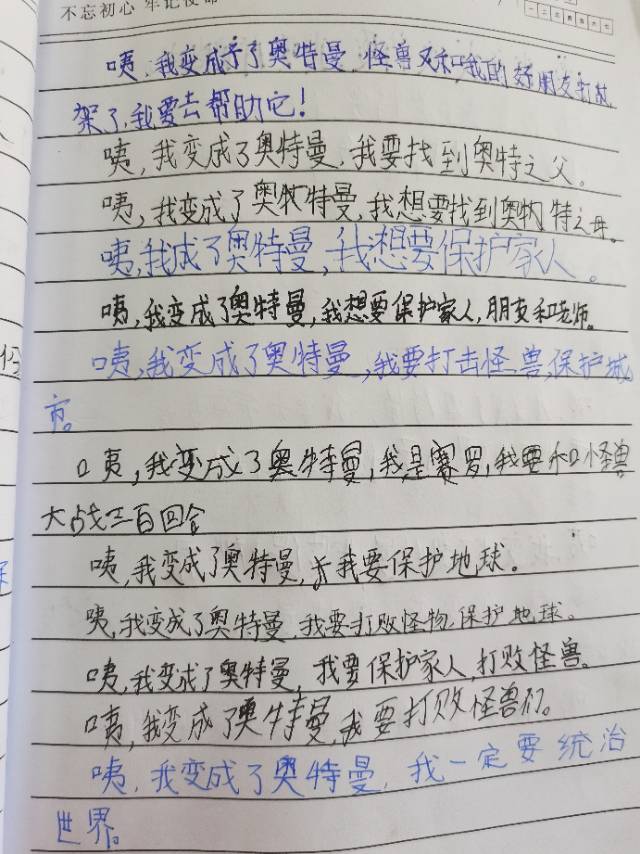 不忘初心 牢记使命
咦，我变成了奥特曼，怪兽又和我的好朋友打
架了，我要去帮助它！
咦，我变成了奥特曼，我要找到奥特之父。
咦，我变成了奥牧特曼，我想要找到奥牧特之母。
咦，我成了奥特曼，我想要保护家人。
咦，我变成了奥特曼，我想要保护家人，朋友和老师。
咦，我变成了奥特曼，我要打击怪兽，保护城
市。
咦，我变成了奥特曼，我是赛罗，我要和怪兽
大战三百回合
咦，我变成了奥特曼，我要保护地球。
咦，我变成了奥特曼，我要打败怪物，保护地球。
咦，我变成了奥特曼，我要保护家人，打败怪兽。
咦，我变成了奥特曼，我要打败怪兽们。
咦，我变成了奥特曼，我一定要统治
世界。